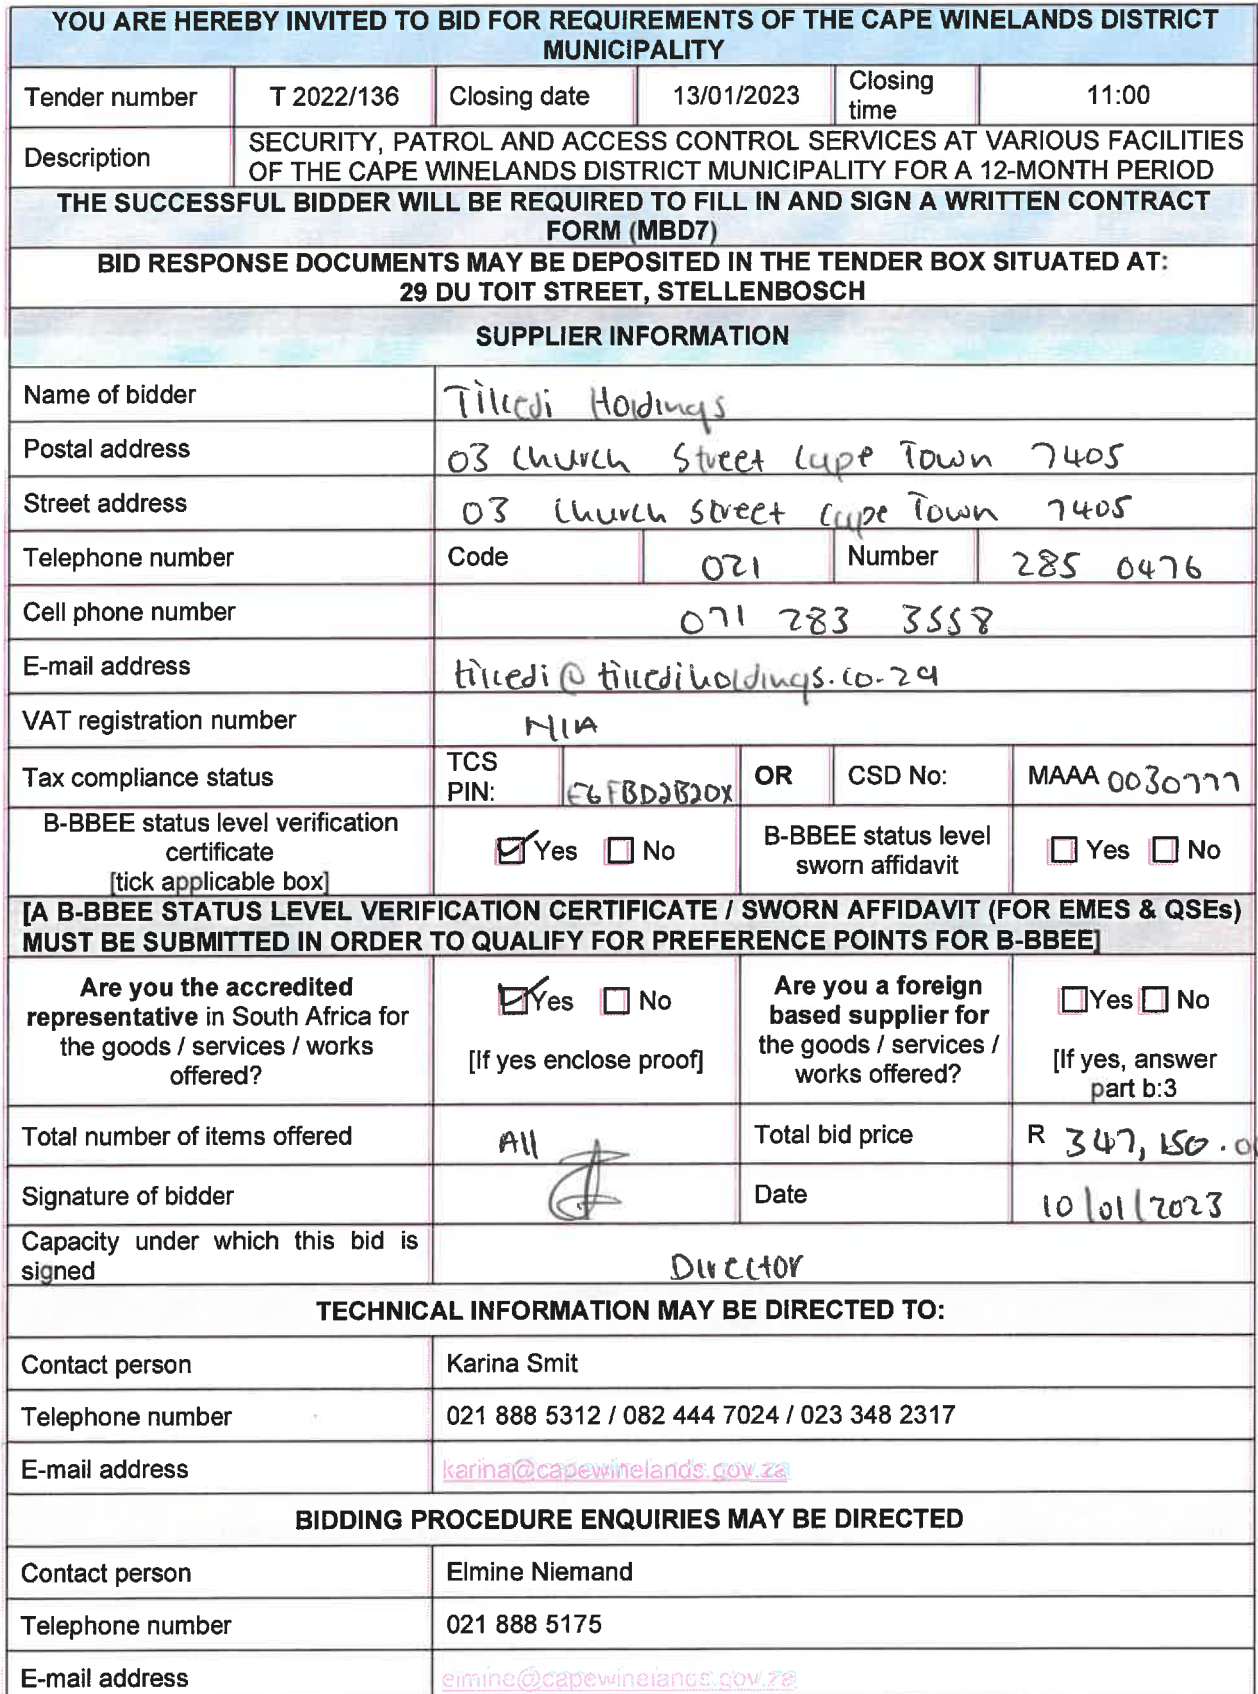 YOU ARE HEREBY INVITED TO BID FOR REQUIREMENTS OF THE CAPE WINELANDS DISTRICT
MUNICIPALITY
Tender number T 2022/136 Closing date 13/01/2023 Closing time 11:00
Description SECURITY, PATROL AND ACCESS CONTROL SERVICES AT VARIOUS FACILITIES
OF THE CAPE WINELANDS DISTRICT MUNICIPALITY FOR A 12-MONTH PERIOD
THE SUCCESSFUL BIDDER WILL BE REQUIRED TO FILL IN AND SIGN A WRITTEN CONTRACT
FORM (MBD7)
BID RESPONSE DOCUMENTS MAY BE DEPOSITED IN THE TENDER BOX SITUATED AT:
29 DU TOIT STREET, STELLENBOSCH
SUPPLIER INFORMATION
Name of bidder Tilredi Holdings
Postal address 03 Church Street Cape Town 7405
Street address 03 Church Street Cape Town 7405
Telephone number Code 021 Number 285 0476
Cell phone number 071 283 3558
E-mail address
VAT registration number N/A
Tax compliance status TCS PIN: E6FBD2B20X OR CSD No: MAAA 0030777
B-BBEE status level verification
certificate
[tick applicable box]
Yes No
B-BBEE status level
sworn affidavit
Yes No
[A B-BBEE STATUS LEVEL VERIFICATION CERTIFICATE / SWORN AFFIDAVIT (FOR EMES & QSEs)
MUST BE SUBMITTED IN ORDER TO QUALIFY FOR PREFERENCE POINTS FOR B-BBEE]
Are you the accredited
representative in South Africa for
the goods / services / works
offered?
Yes No
[If yes enclose proof]
Are you a foreign
based supplier for
the goods / services /
works offered?
Yes No
[If yes, answer
part b:3
Total number of items offered All Total bid price R 347,150.0
Signature of bidder Date 10/01/2023
Capacity under which this bid is
signed
Director
TECHNICAL INFORMATION MAY BE DIRECTED TO:
Contact person Karina Smit
Telephone number 021 888 5312 / 082 444 7024 / 023 348 2317
E-mail address karina@capewinelands.gov.za
BIDDING PROCEDURE ENQUIRIES MAY BE DIRECTED
Contact person Elmine Niemand
Telephone number 021 888 5175
E-mail address elmine@capewinelands.gov.za